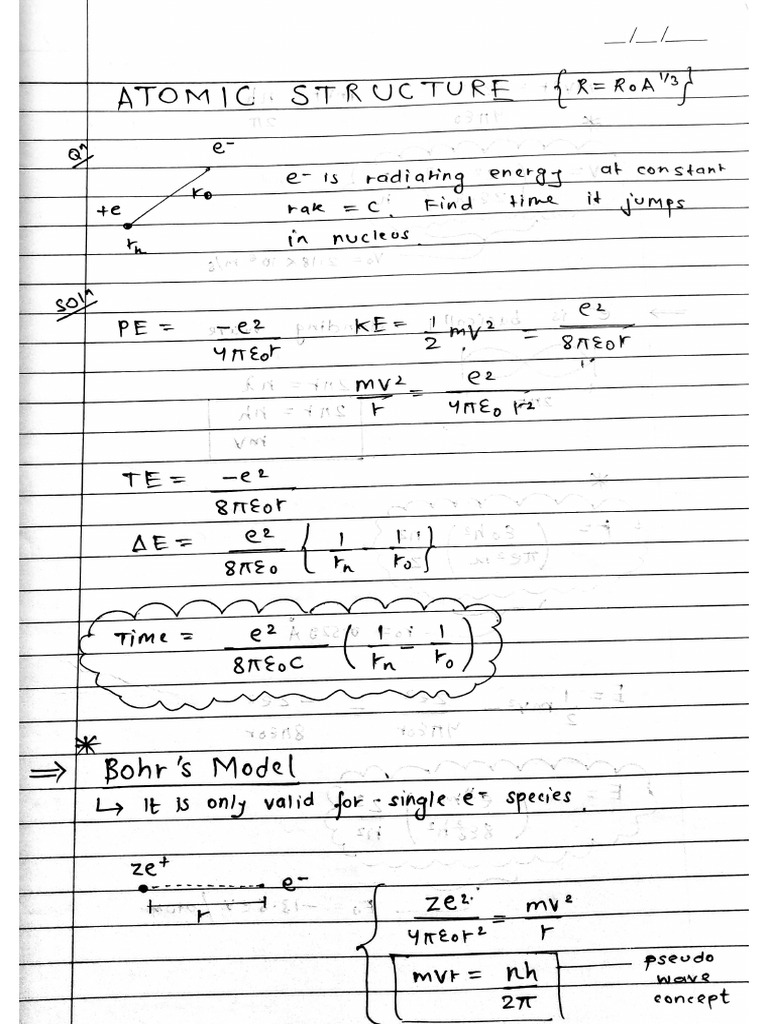 _/_/__
ATOMIC STRUCTURE {R = R₀A^1/3}
Qⁿ
e-
r₀
+e
rₙ
e- is radiating energy at constant
rate = C. Find time it jumps
in nucleus.
Solⁿ
PE = -e²/4πε₀r KE = 1/2 mv² = e²/8πε₀r
mv²/r = e²/4πε₀ r²
TE = -e²/8πε₀r
ΔE = e²/8πε₀ {1/rₙ - 1/r₀}
Time = e²/8πε₀C (1/rₙ - 1/r₀)
*
⇒ Bohr's Model
↳ It is only valid for single e- species.
ze+
e-
r
ze²/4πε₀r² = mv²/r
mvr = nh/2π
pseudo
wave
concept